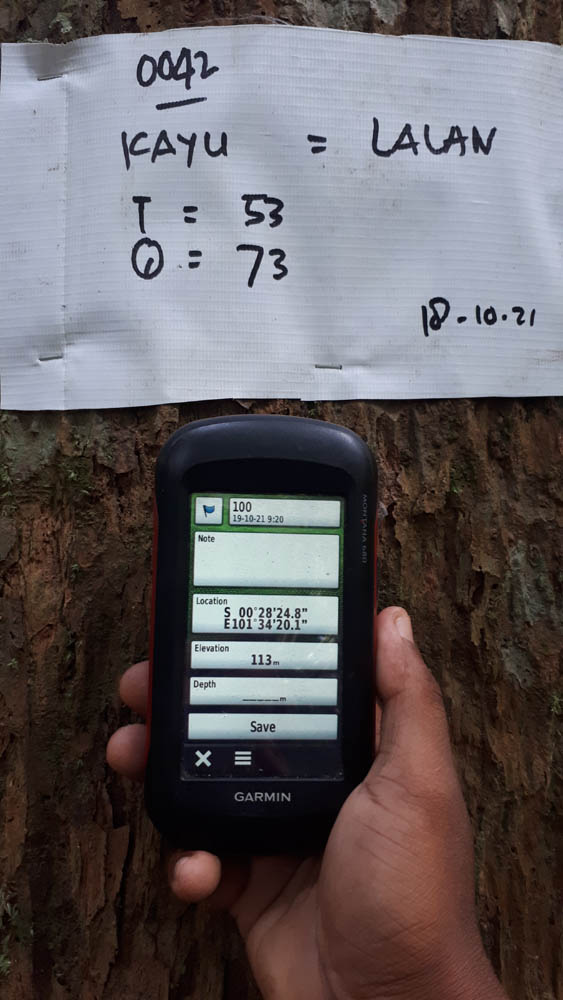 0042
KAYU = LALAN
T = 53
Ø = 73
18-10-21
MONTANA 680
100
19-10-21 9:20
Note
Location
S 00°28'24.8"
E101°34'20.1"
Elevation
113m
Depth
_____m
Save
GARMIN